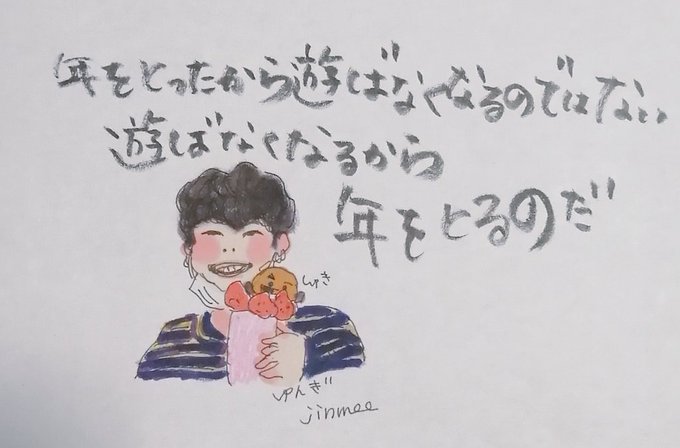 年をとったから遊ばなくなるのではない
遊ばなくなるから
年をとるのだ
しゅき
ゆんぎ
jinmee